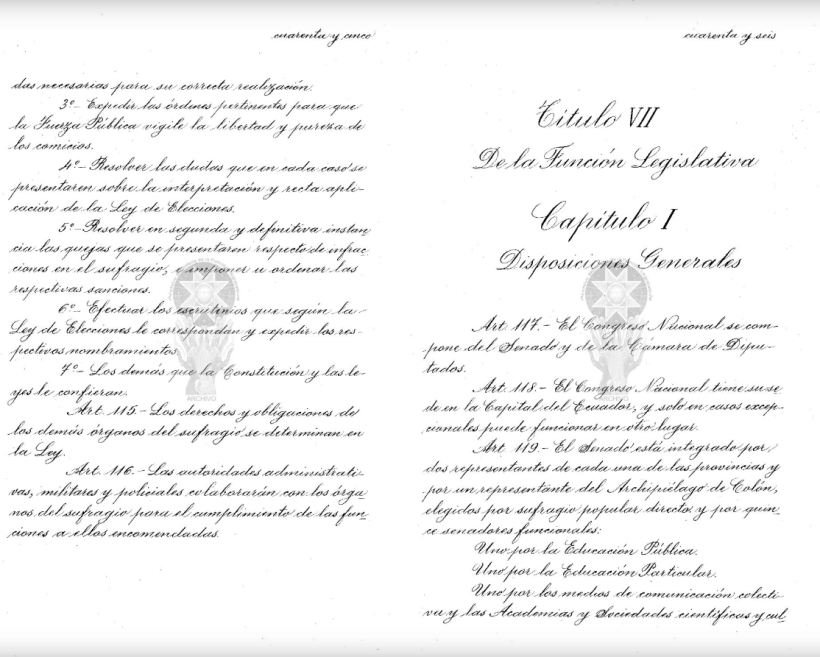 cuarenta y cinco
das necesarias para su correcta realización.
3º- Expedir las órdenes pertinentes para que
la Fuerza Pública vigile la libertad y pureza de
los comicios.
4º- Resolver las dudas que en cada caso se
presentaren sobre la interpretación y recta apli-
cación de la Ley de Elecciones.
5º- Resolver en segunda y definitiva instan
cia las quejas que se presentaren respecto de infrac
ciones en el sufragio, e imponer u ordenar las
respectivas sanciones.
6º- Efectuar los escrutinios que según la
Ley de Elecciones le correspondan y expedir los res-
pectivos nombramientos.
7º- Los demás que la Constitución y las le-
yes le confieran.
Art. 115.- Los derechos y obligaciones de
los demás órganos del sufragio se determinan en
la Ley.
Art. 116.- Las autoridades administrati-
vas, militares y policiales colaborarán con los órga
nos del sufragio para el cumplimiento de las fun
ciones a ellos encomendadas.
ARCHIVO
cuarenta y seis
Título VII
De la Función Legislativa
Capítulo I
Disposiciones Generales
Art. 117.- El Congreso Nacional se com-
pone del Senado y de la Cámara de Dipu-
tados.
Art. 118.- El Congreso Nacional tiene su se
de en la Capital del Ecuador, y solo en casos excep-
cionales puede funcionar en otro lugar.
Art. 119.- El Senado está integrado por
dos representantes de cada una de las provincias y
por un representante del Archipiélago de Colón,
elegidos por sufragio popular directo; y por quin
ce senadores funcionales:
Uno por la Educación Pública.
Uno por la Educación Particular.
Uno por los medios de comunicación colecti-
va y las Academias y Sociedades científicas y cul
ARCHIVO